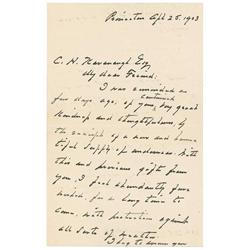 Princeton Apl 25. 1903
C. H. Kavanaugh Esq
My dear Friend:
I was reminded a
few days ago, of you, by great
kindness and thoughtfulness, by
the receipt of a new and
supply of underwear. With
this and previous gifts from
you, I feel abundantly for
a long time to
come, with protection against
all sorts of weather
I beg to assure you